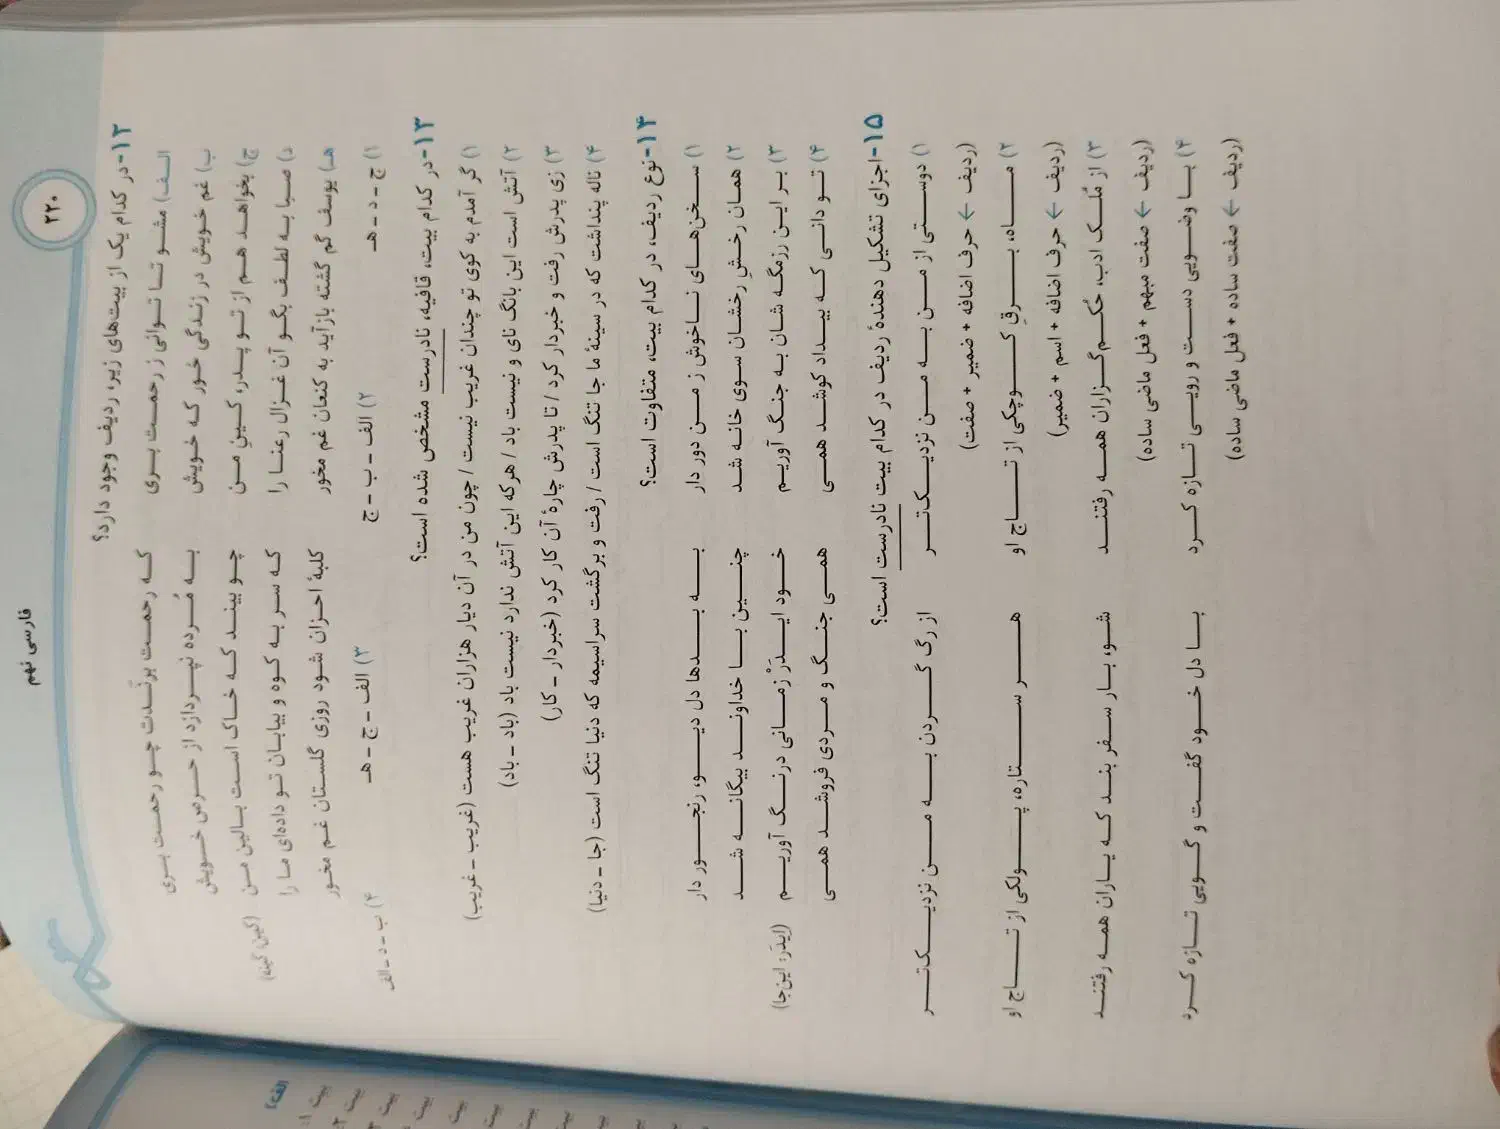 فارسی نهم
۲۲۰
۱۲- در کدام یک از بیت‌های زیر، ردیف وجود دارد؟
الف) مشو تا توانی ز رحمت بری که رحمت برندت چو رحمت بری
ب) غم خویش در زندگی خور که خویش به مُرده نپردازد از حرص خویش
ج) بخواهد هم از تو پدر، کینِ من چو بیند که خاک است بالین من (کین: کینه)
د) صبا به لطف بگو آن غزال رعنا را که سر به کوه و بیابان تو داده‌ای ما را
هـ) یوسف گم گشته بازآید به کنعان غم مخور کلبهٔ احزان شود روزی گلستان غم مخور
۱) ج - د - هـ ۲) الف - ب - ج ۳) الف - ج - هـ ۴) ب - د - الف
۱۳- در کدام بیت، قافیه، نادرست مشخص شده است؟
۱) گر آمدم به کوی تو چندان غریب نیست / چون من در آن دیار هزاران غریب هست (غریب - غریب)
۲) آتش است این بانگ نای و نیست باد / هرکه این آتش ندارد نیست باد (باد - باد)
۳) زی پدرش رفت و خبردار کرد / تا پدرش چارهٔ آن کار کرد (خبردار - کار)
۴) ناله پنداشت که در سینهٔ ما جا تنگ است / رفت و برگشت سراسیمه که دنیا تنگ است (جا - دنیا)
۱۴- نوع ردیف، در کدام بیت، متفاوت است؟
۱) سخن‌های ناخوش ز من دور دار به بدها دل دیو، رنجور دار
۲) همان رخشِ رخشان سوی خانه شد چنین با خداوند بیگانه شد
۳) بر این رزمگه شان به جنگ آوریم خود ایدَرْ زمانی درنگ آوریم (ایدَر: این‌جا)
۴) تو دانی که بیداد کوشد همی همی جنگ و مردی فروشد همی
۱۵- اجزای تشکیل دهندهٔ ردیف در کدام بیت نادرست است؟
۱) دوستی از من به من نزدیک‌تر از رگ گردن به من نزدیک‌تر
(ردیف ← حرف اضافه + ضمیر + صفت)
۲) ماه، برقِ کوچکی از تاج او هر ستاره، پولکی از تاج او
(ردیف ← حرف اضافه + اسم + ضمیر)
۳) از مُلک ادب، حُکم‌گزاران همه رفتند شو، بار سفر بند که یاران همه رفتند
(ردیف ← صفت مبهم + فعل ماضی ساده)
۴) با وضویی دست و رویی تازه کرد با دل خود گفت و گویی تازه کرد
(ردیف ← صفت ساده + فعل ماضی ساده)
الف)
بیت ۱:
بیت ۲:
بیت
بیت
بیت
بیت
بیت
بیت
بیت